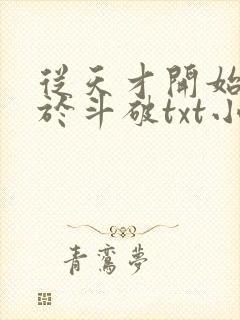 從天才開始
於斗破txt小
青鸞夢